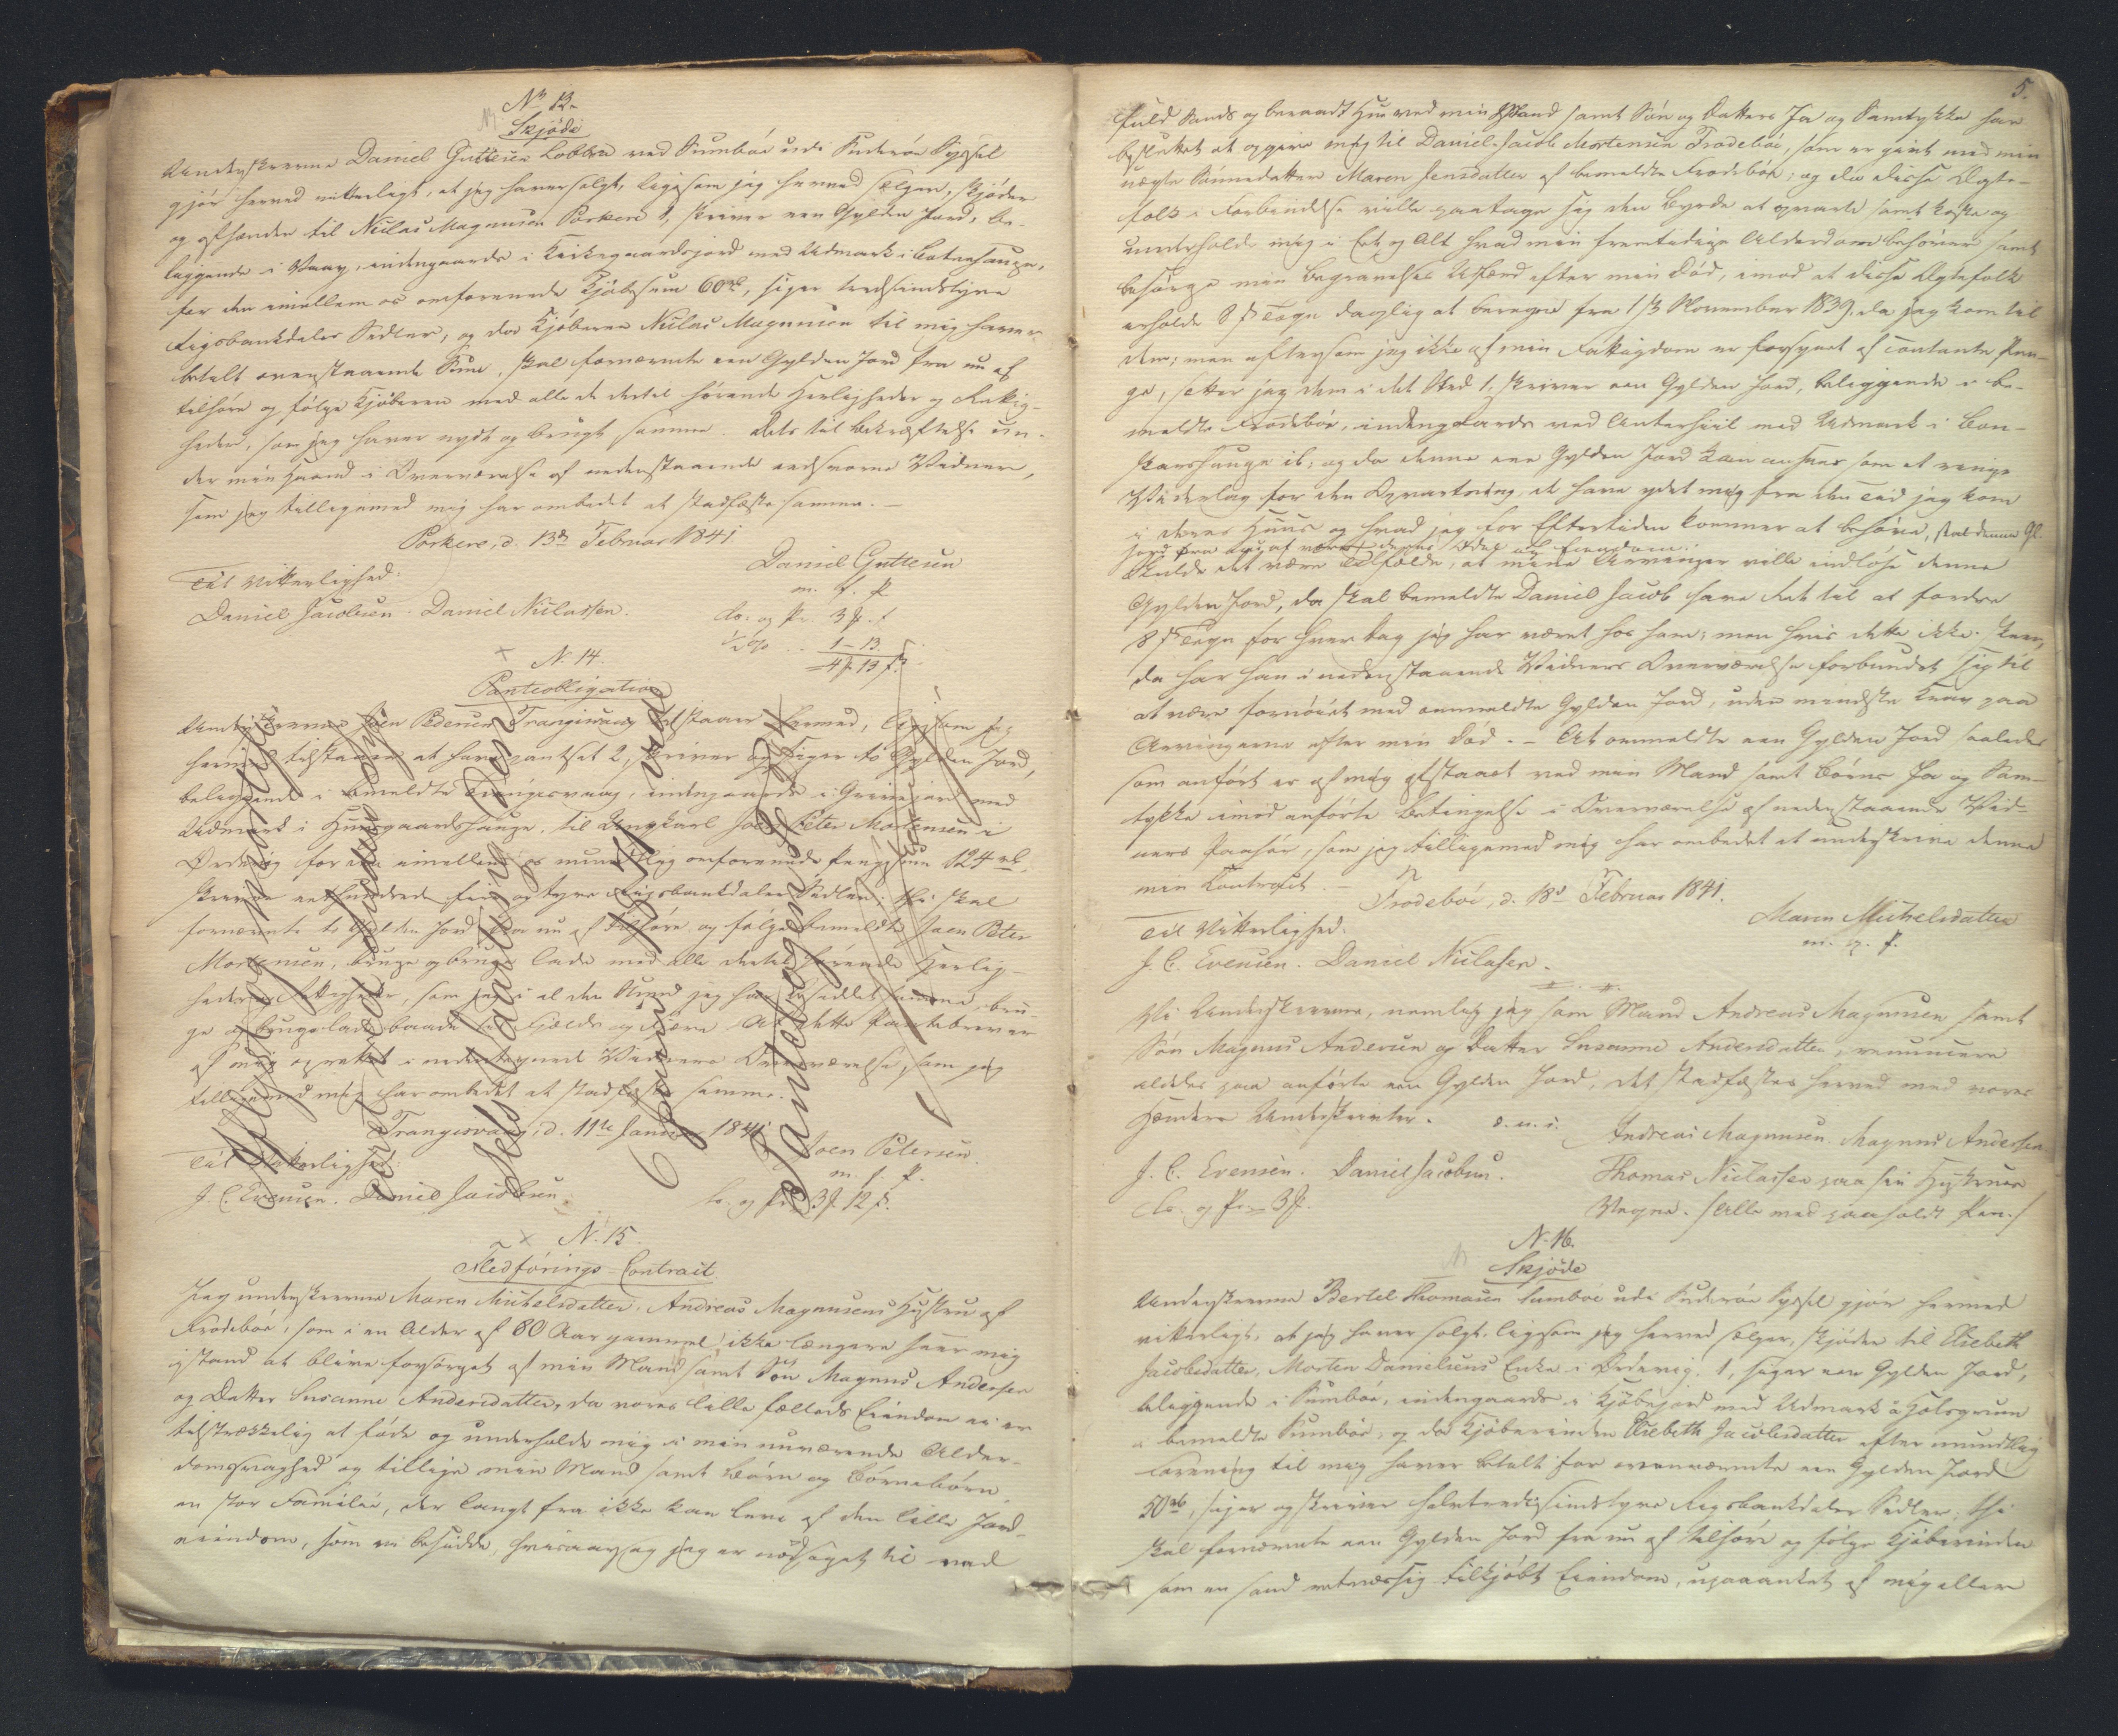 No 13.
Skjöde
Underskrevne Daniel Guttesen Lobbra ved Sumböe udi Suderöe Syssel
gjör herved vitterligt, at jeg haver solgt, ligesom jeg herved sælger, skjöder
og afhænder til Niclas Magnusen Porkere 1, skriver een Gylden Jord, be-
liggende i Vaag, indengaards i Kirkegaardsjord med Udmark i
for den imellem os omforenede Kjöbesum 60 rbd, siger tredsindstyve
Rigsbankdaler Sedler; og da Kjöberen Niclas Magnusen til mig haver
betalt ovenstaaende Sum, skal fornævnte een Gylden Jord fra nu af
tilhöre og fölge Kjöberen med alle de dertil hörende Herligheder og Rettig-
heder, som jeg haver nydt og brugt samme. Dets til Bekræftelse un-
der min Haand i Overværelse af nedenstaaende eedsvorne Vidner,
som jeg tilligemed mig har ombedet at stadfæste samme.
Porkere, d. 13de Februar 1841
Daniel Guttesen
m. f. P.
Til Vitterlighed:
Daniel Jacobsen. Daniel Niclassen.
N. 14.
Panteobligation
Underskrevne Joen Pedersen Trangisvaag tilstaaer herved, ligesom jeg
herved tilstaaer at have pantsat 2, skriver og siger to Gylden Jord,
beliggende i bemeldte Trangisvaag, indengaards i med
Udmark i Huusgaardshauge, til Ungkarl Joen Peter Mortensen i
Ördevig for den imellem os mundtlig omforenede Pengesum 124 rbd,
skriver eethundrede fire og tyve Rigsbankdaler Sedler; thi skal
fornævnte to Gylden Jord fra nu af tilhöre og fölge bemeldte Joen Peter
Mortensen, bruge og bruge lade med alle dertil hörende Herlig-
heder og Rettigheder, som jeg i al den Stund jeg har besiddet samme, bru-
ge og bruge lade baade til Fjælds og Fjære. At dette Pantebrev er
af mig oprettet i undertegnede Vidners Overværelse, som jeg
tilligemed mig har ombedet at stadfæste samme.
Trangisvaag, d. 11te Januar 1841
Joen Petersen
m. f. P.
Til Vitterlighed:
J. C. Evensen. Daniel Jacobsen.
N. 15.
Fledförings-Contract
Jeg underskrevne Maren Michelsdatter, Andreas Magnusens Hustru af
Frodeböe, som i en Alder af 80 Aar gammel, ikke længere seer mig
istand at blive forsörget af min Mand samt Sön Magnus Andersen
og Datter Susanne Andersdatter, da vores lille fælleds Eiendom ei er
tilstrækkelig at föde og underholde mig i min nuværende Alder-
domssvaghed og tillige min Mand samt Börn og Börnebörn,
en stor Familie, der langt fra ikke kan leve af den lille Jord-
eiendom, som vi besidde, hvisaarsag jeg er nödsaget til ved
5.
fuld Sands og beraad Hu ved min Mand samt Sön og Datters Ja og Samtykke har
besluttet at opgive mig til Daniel Jacob Mortensen Frodeböe, som er givt med min
uægte Sönnedatter Maren Jensdatter af bemeldte Frodeböe; og da disse Ægte-
folk i Forbindelse ville paatage sig den Byrde at opvarte samt koste og
underholde mig i Eet og Alt hvad min fremtidige Alderdom behöver samt
besörge min Begravelses Udfærd efter min Död, imod at disse Ægtefolk
erholde 8 s Tegn daglig at beregne fra 1ste November 1839, da jeg kom til
dem; men eftersom jeg ikke af min Fattigdom er forsynet af contante Pen-
ge, setter jeg dem i det Sted 1, skriver een Gylden Jord, beliggende i be-
meldte Frodeböe, indengaards ved med Udmark i
ib; og da denne een Gylden Jord kan ansees som et ringe
Vederlag for den Opvartning, de have ydet mig fra den Tid jeg kom
i deres Huus og hvad jeg for Eftertiden kommer at behöve, skal denne Gl.
Jord fra nu af være deres Odel og Eiendom.
Skulde det være Tilfælde, at mine Arvinger ville indlöse denne
Gylden Jord, da skal bemeldte Daniel Jacob have Ret til at fordre
8 s Tegn for hver Dag jeg har været hos ham; men hvis dette ikke skeer,
da har han i nedenstaaende Vidners Overværelse forbundet sig til
at være fornöiet med ommeldte Gylden Jord, uden mindste Krav paa
Arvingerne efter min Död. – At ommeldte een Gylden Jord saaledes
som anfört er af mig afstaaet ved min Mand samt Börns Ja og Sam-
tykke imod anförte Betingelse i Overværelse af nedenstaaende Vid-
ners Paahör, som jeg tilligemed mig har ombedet at underskrive denne
min Contract.
Frodeböe, d. 18d Februar 1841.
Maren Michelsdatter
m. f. P.
Til Vitterlighed.
J. C. Evensen. Daniel Niclasen.
Vi Underskrevne, nemlig jeg som Mand Andreas Magnusen samt
Sön Magnus Andersen og Datter Susanne Andersdatter, renuncere
aldeles paa anförte een Gylden Jord, det stadfæstes herved med vores
Hænders Underskrivter. d. u. s.
Andreas Magnusen. Magnus Andersen
J. C. Evensen. Daniel Jacobsen. Thomas Niclassen paa sin Hustrues
Vegne. /Alle med paaholdt Pen./
N. 16.
Skjöde
Underskrevne Bertel Thomasen Sumböe udi Suderöe Syssel gjör hermed
vitterligt, at jeg haver solgt, ligesom jeg herved sælger, skjöder til Elsebeth
Jacobsdatter, Morten Danielsens Enke i Ördevig, 1, siger een Gylden Jord,
beliggende i Sumböe, indengaards i Kjöbejord med Udmark
i bemeldte Sumböe, og da Kjöberinden Elsebeth Jacobsdatter efter mundtlig
Forening til mig haver betalt for ovennævnte een Gylden Jord
50 rbd, siger og skriver halvtredsindstyve Rigsbankdaler Sedler; thi
skal fornævnte een Gylden Jord fra nu af tilhöre og fölge Kjöberinden
som en sand retmæssig tilkjöbt Eiendom, upaaanket af mig eller